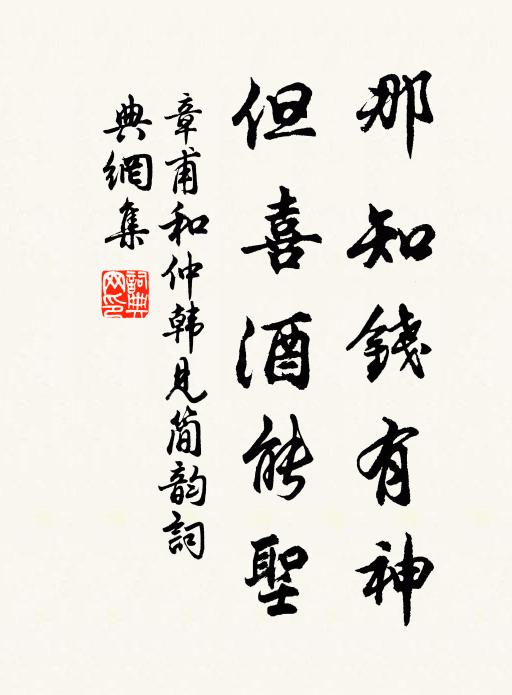 那知錢有神
但喜酒能聖
章甫和仲韩見简韵詞
典網集
詞典
网印